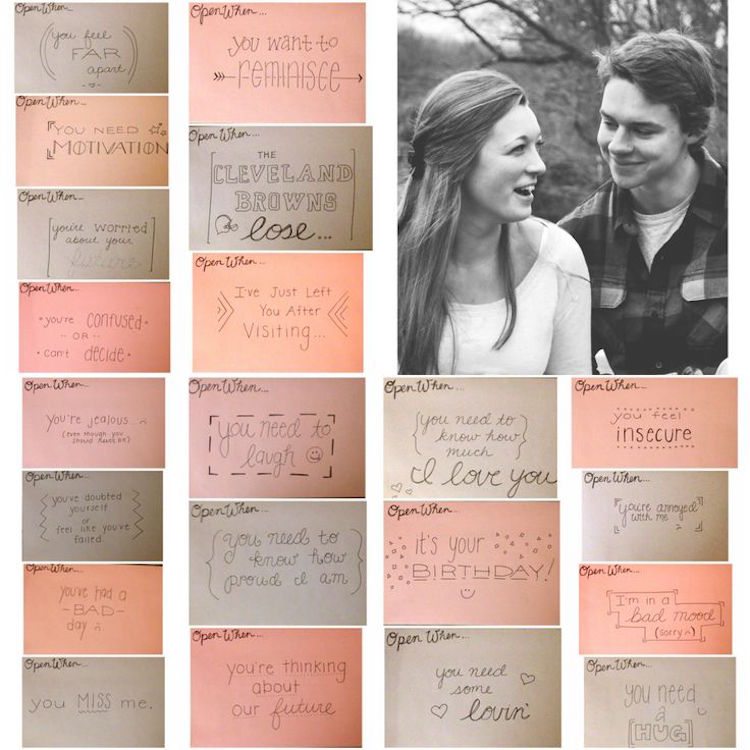 Open When...
you feel
FAR
apart
Open When...
YOU NEED
MOTIVATION
Open When...
you're worried
about your
future
Open When...
you're confused
OR
can't decide
Open When...
you're jealous...
(even though you
should never be)
Open When...
you've doubted
yourself
or
feel like you've
failed
Open When...
you've had a
-BAD-
day
Open When...
you MISS me.
Open When...
you want to
reminisce
Open When...
THE
CLEVELAND
BROWNS
lose...
Open When...
I've Just Left
You After
Visiting...
Open When...
you need to
laugh
Open When...
you need to
know how
proud I am
Open When...
you're thinking
about
our future
Open When...
you need to
know how
much
I love you
Open When...
it's your
BIRTHDAY!
Open When...
you need
some
lovin'
Open When...
you feel
insecure
Open When...
you're annoyed
with me
Open When...
I'm in a
bad mood
(sorry)
Open When...
you need
a
HUG